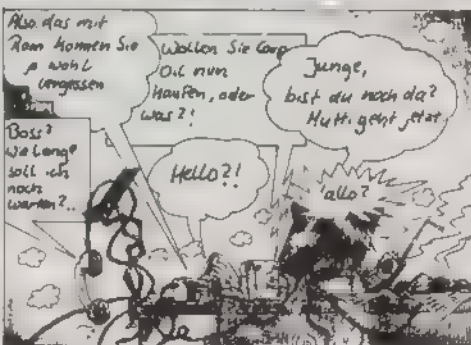 Also, das mit
Rom können Sie
ja wohl
vergessen
Wollen Sie Corp
Oil nun
kaufen, oder
was?!
Junge,
bist du noch da?
Mutti geht jetzt
Boss?
Wie lange
soll ich
noch
warten?..
Hello?!
'allo?